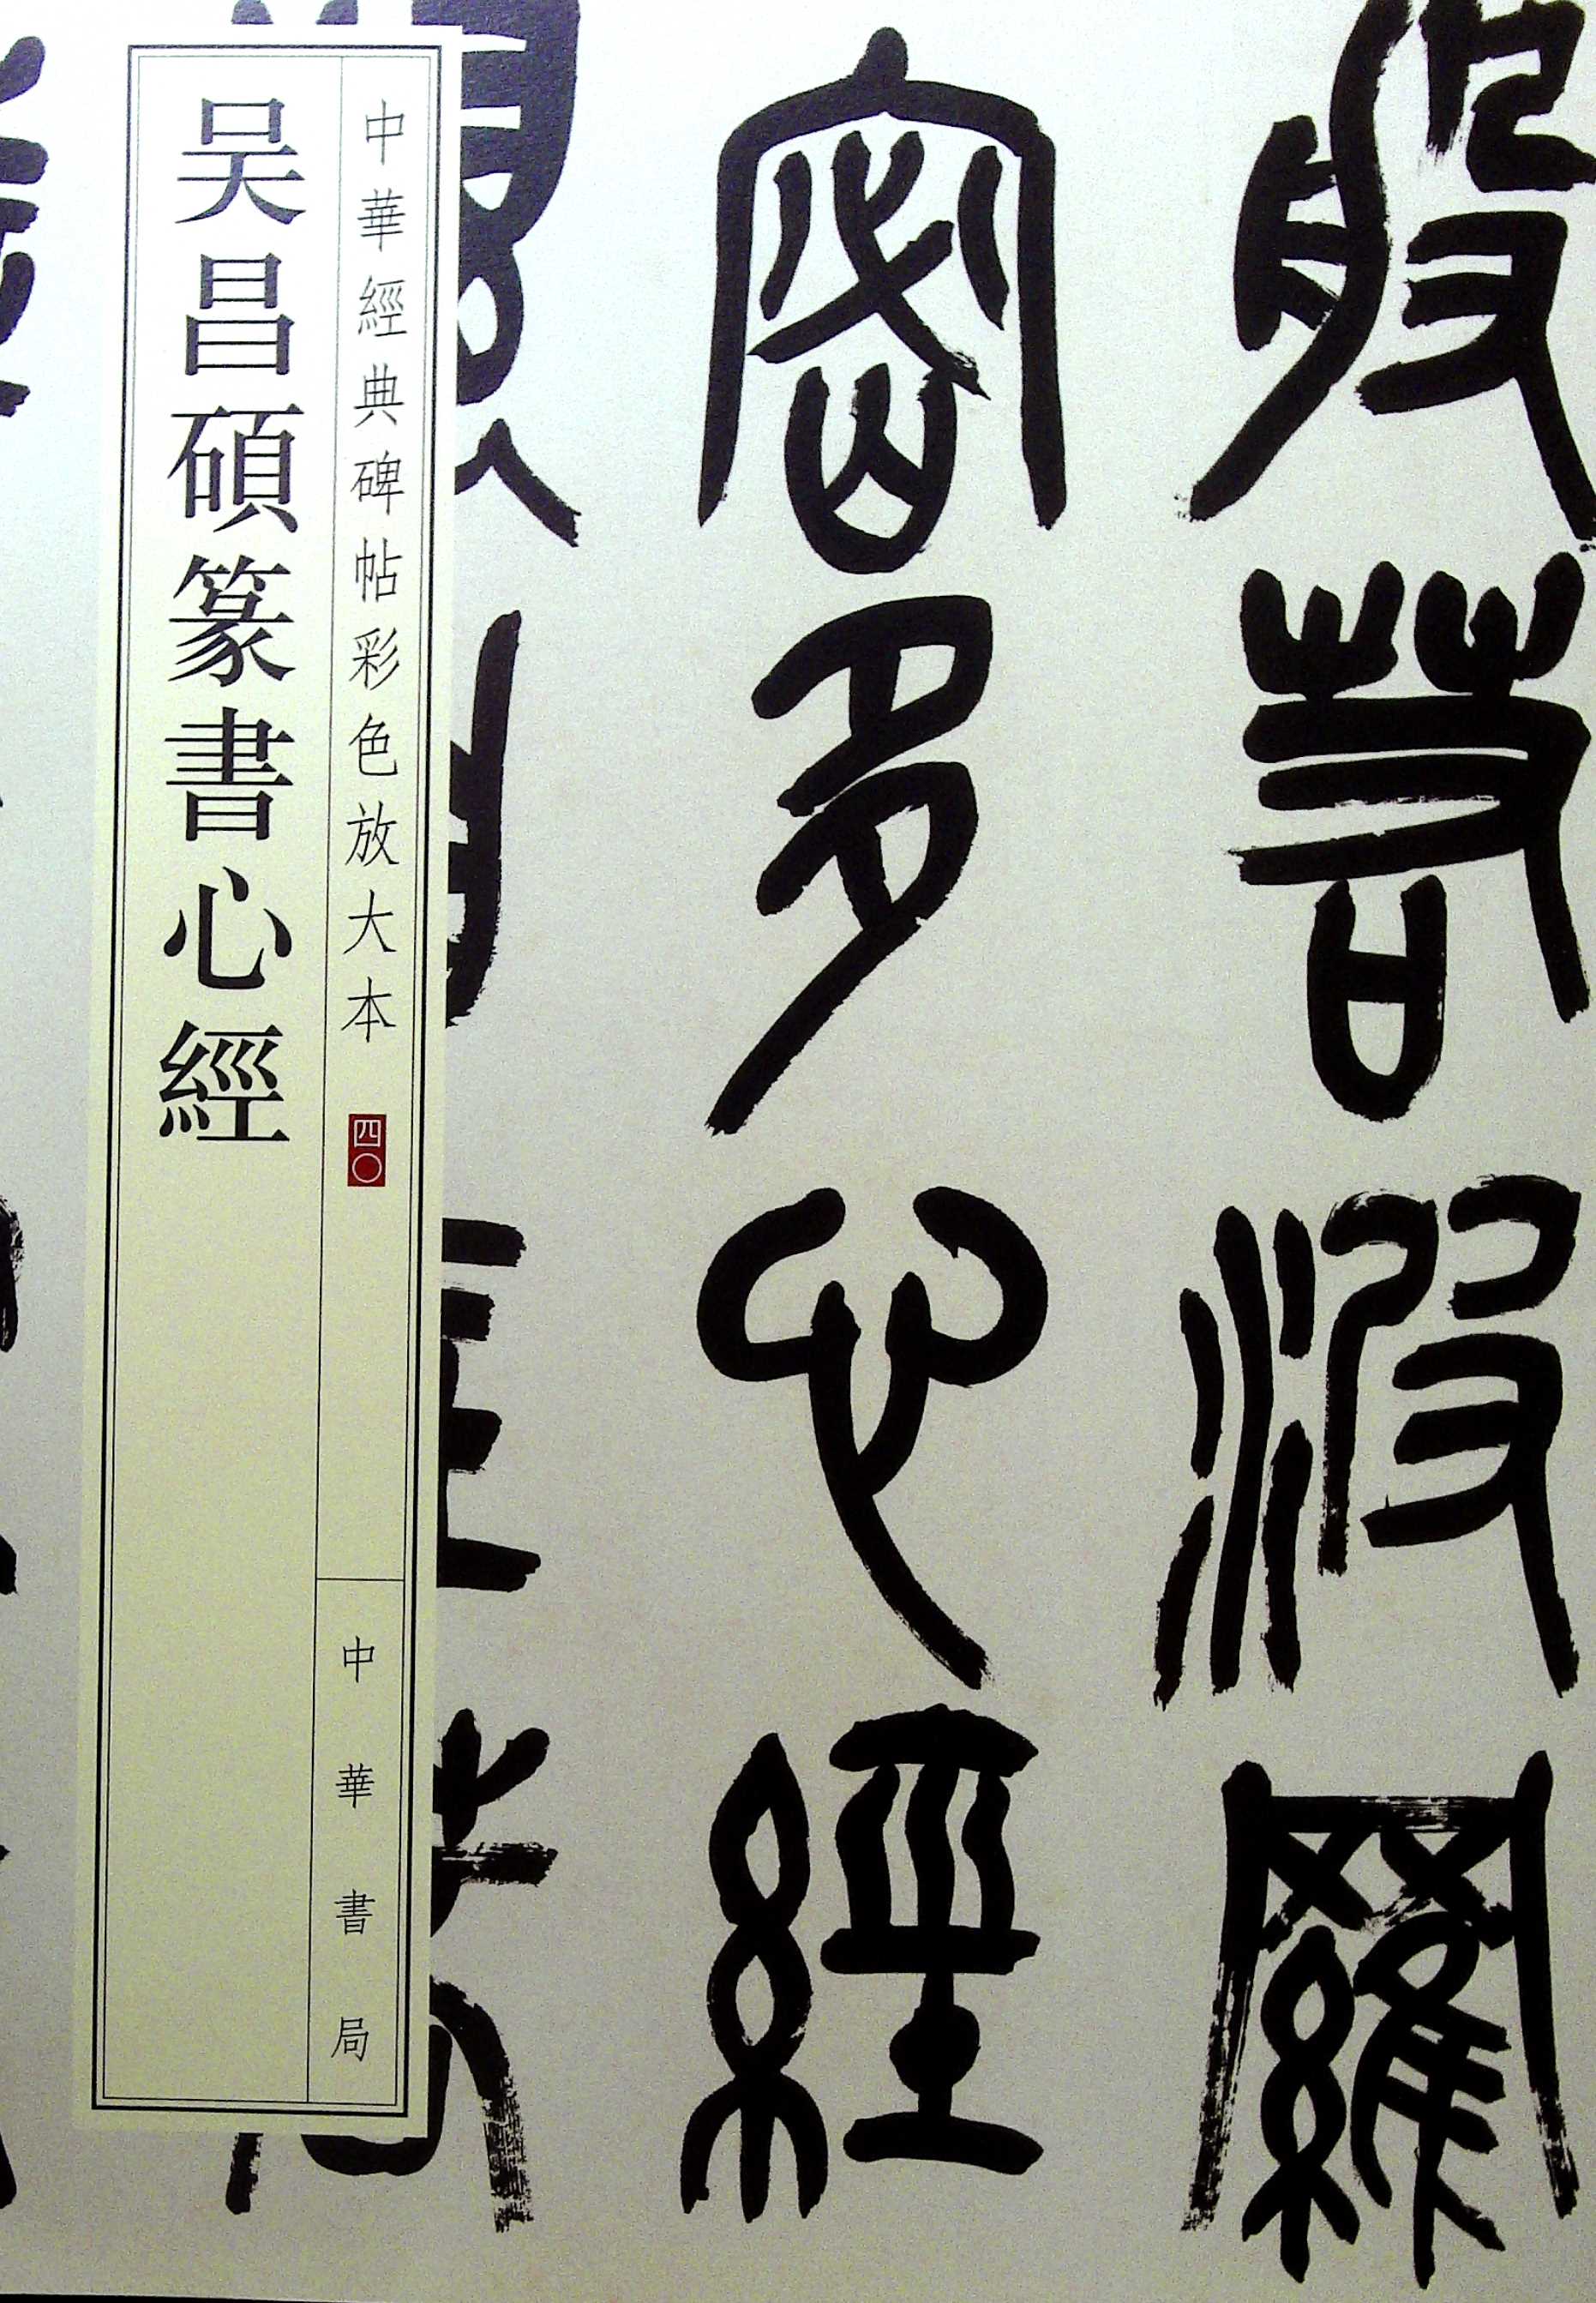 般若波羅
密多心經
中華經典碑帖彩色放大本 四〇
吴昌碩篆書心經
中華書局